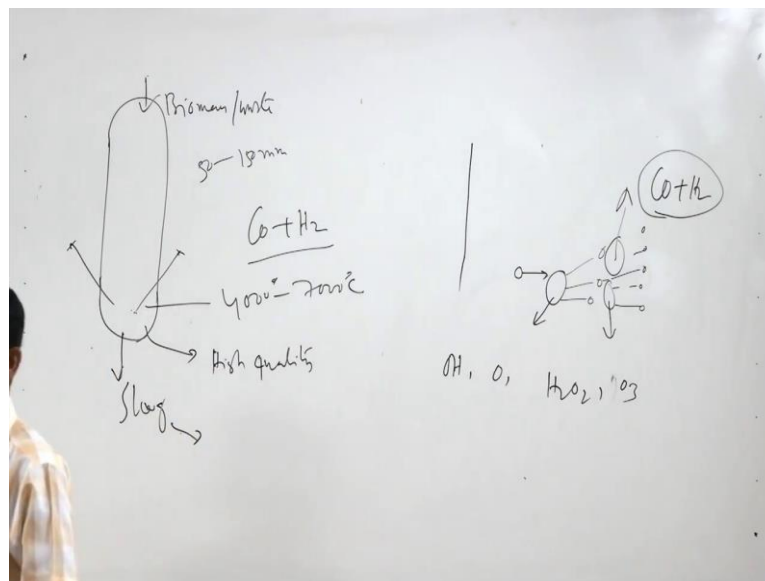 Biomass/waste
50-150mm
CO+H2
4000°-7000°C
High quality
Slag
CO+H2
OH, O, H2O2, O3